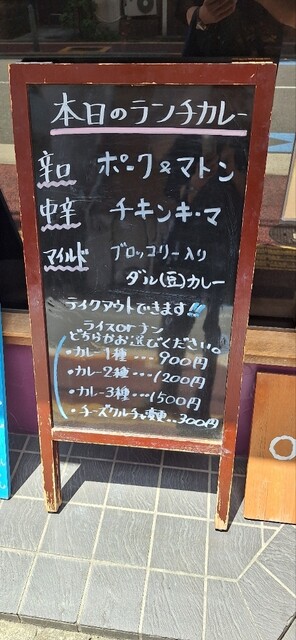 本日のランチカレー
辛口 ポーク&マトン
中辛 チキンキーマ
マイルド ブロッコリー入り
ダル(豆)カレー
テイクアウトできます!!
ライスorナン
どちらかお選びください。
・カレー1種…900円
・カレー2種…1200円
・カレー3種…1500円
・チーズクルチャ変更…300円